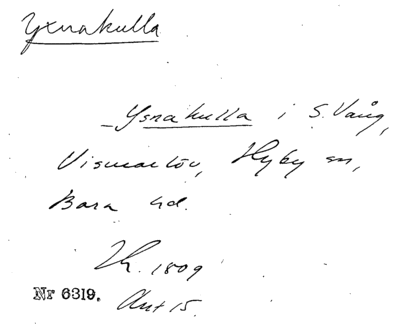 Yxnakulla
Ysnakulla i S. Vång,
Vismarlöv, Hyby sn,
Bara hd.
1809
Nr 6319. Akt 15.